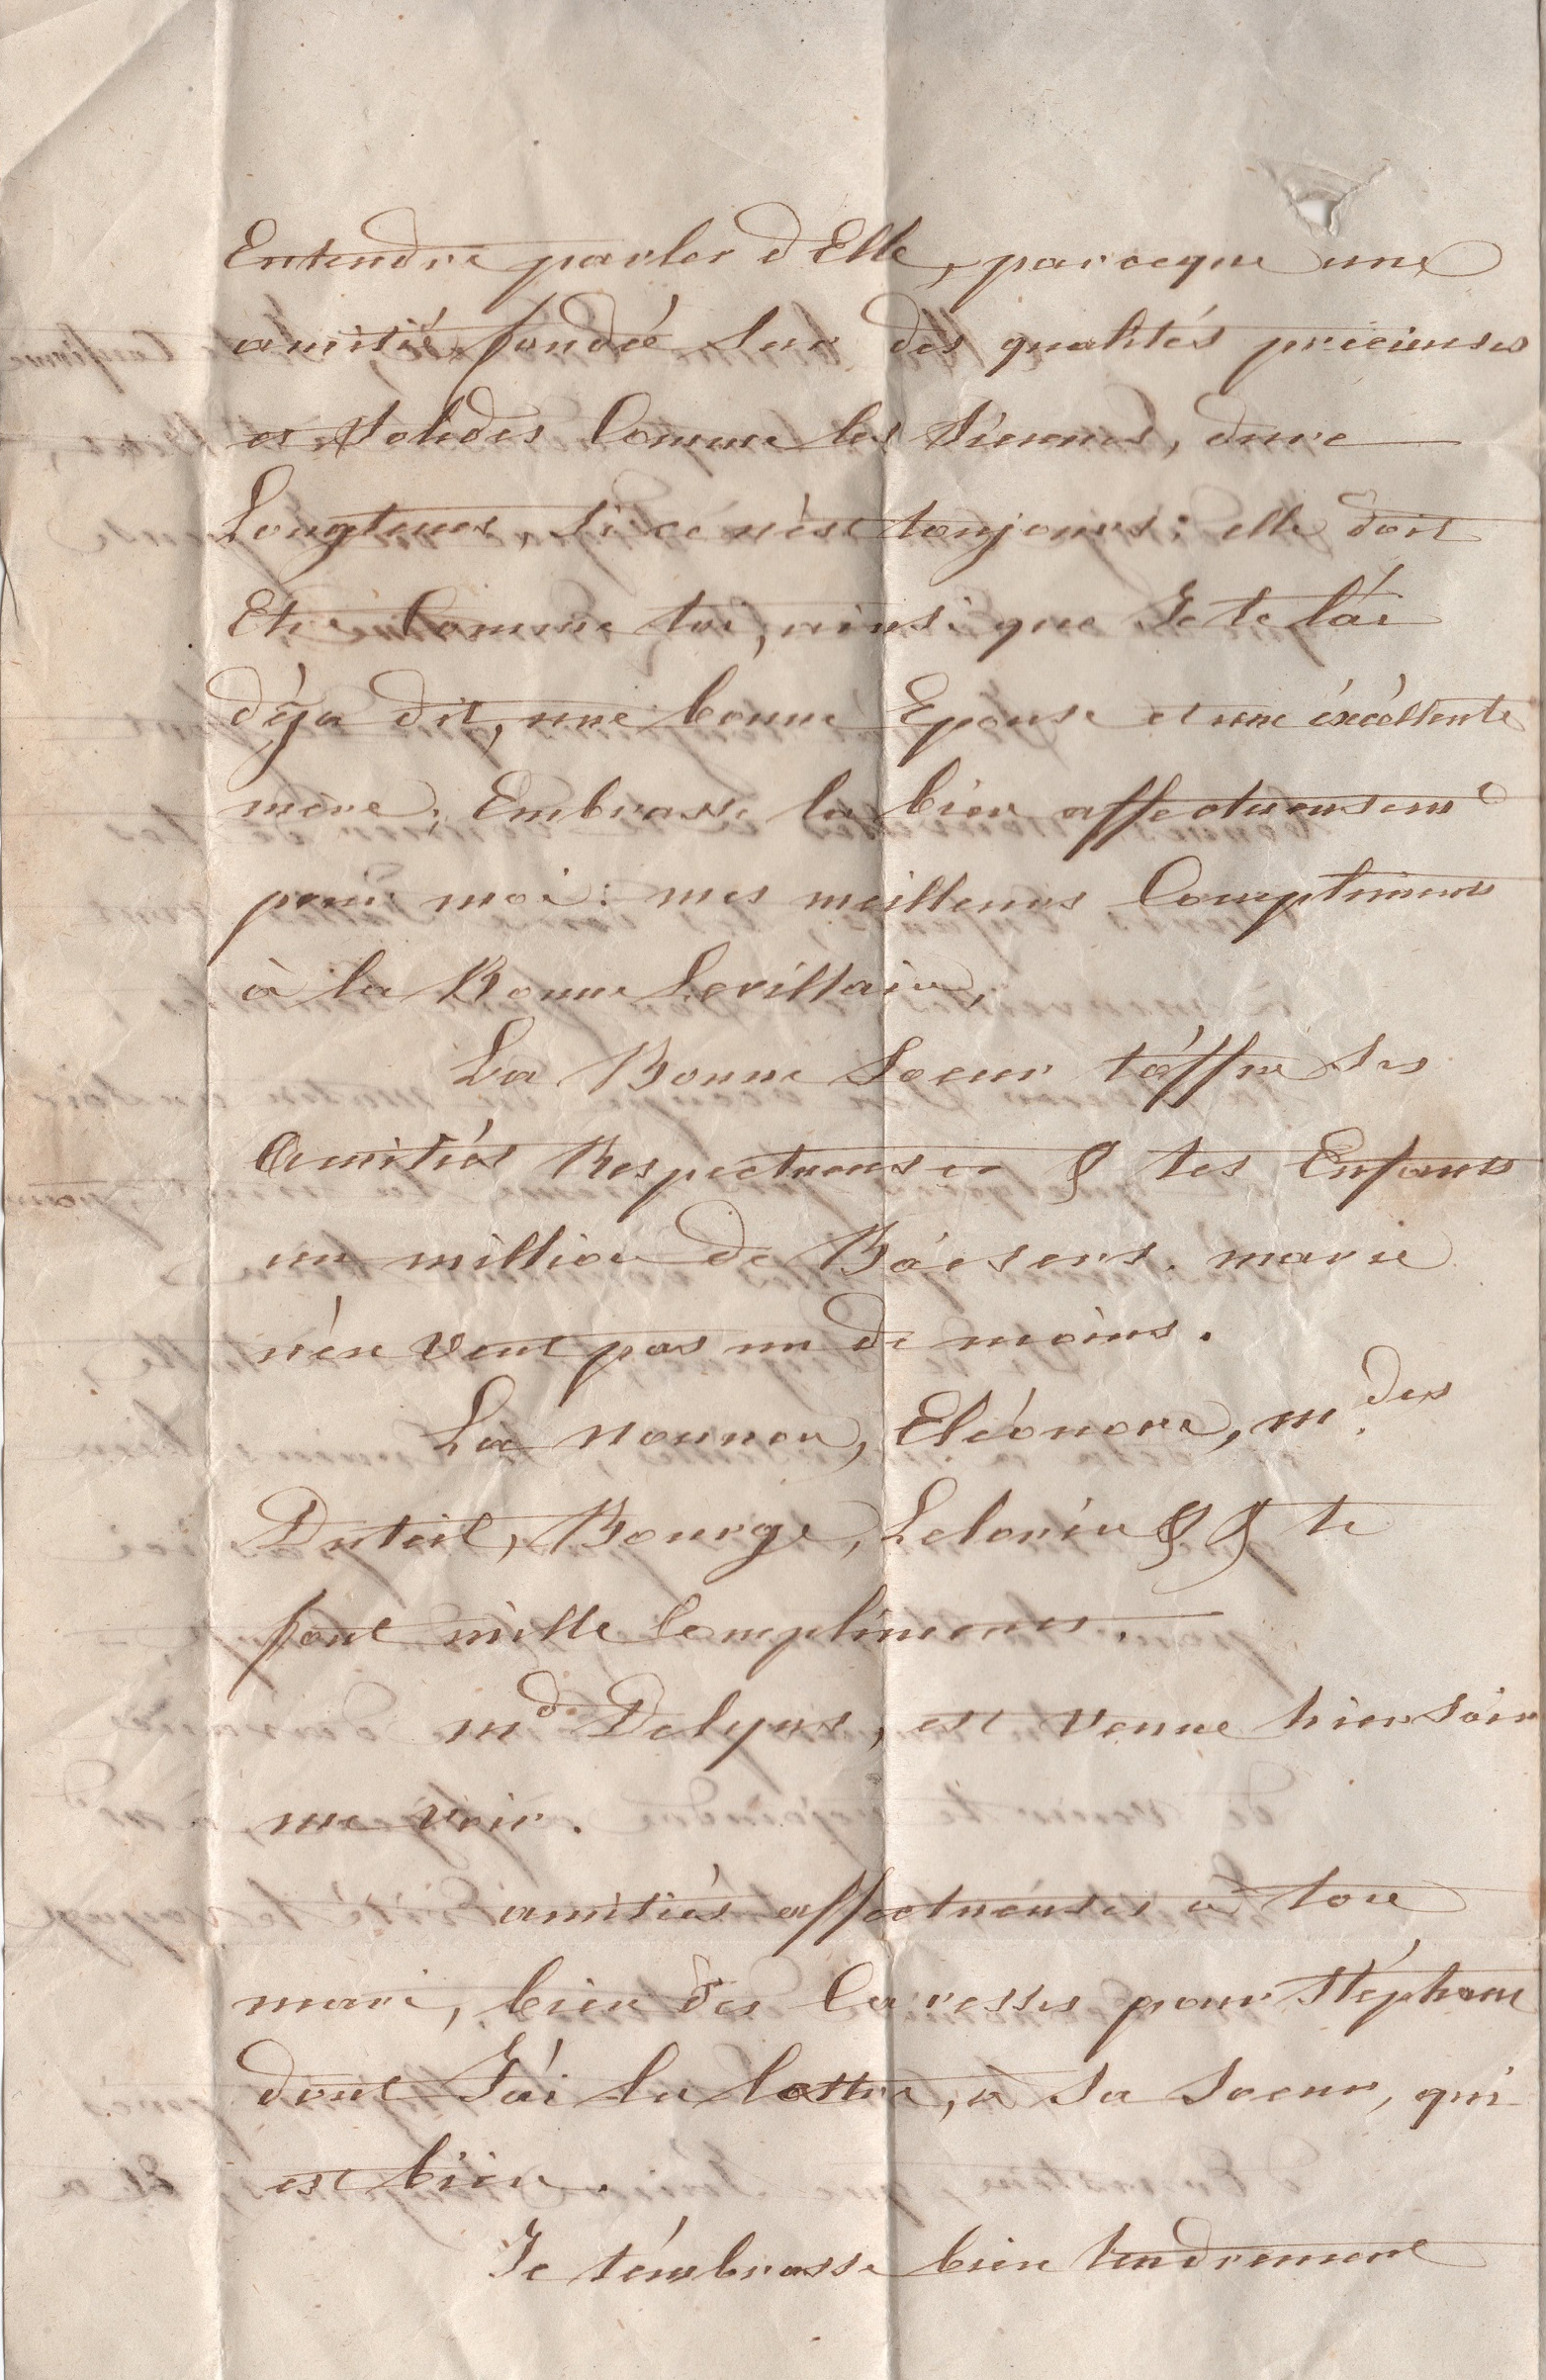 Entendre parler d Elle, parceque une
amitié fondée sur des qualités précieuses
et solides Comme les siennes, dure
Longtems, si ce n'est toujours : elle doit
Etre Comme toi, ainsi que Je te l'ai
déja dit, une bonne Epouse et une éxcéllente
mere. Embrasse la bien affectueusemt
pour moi : mes meilleurs Complimens
à la Bonne Levillain,
La Bonne Soeur t'offre ses
Amitiés Respectueuses & tes Enfants
un million de Baisers. marie
n'en veut pas un de moins.
La nounou, Eléonore, mdes
Duteil, Bourge, Lelorin & & te
font mille Complimens.
md Delyus, est venue hier soir
me voir.
amitiés affectueuses à ton
mari, bien des Caresses pour Stéphane
dont J'ai lu la lettre, a sa soeur, qui
est bien.
Je t'embrasse bien tendrement